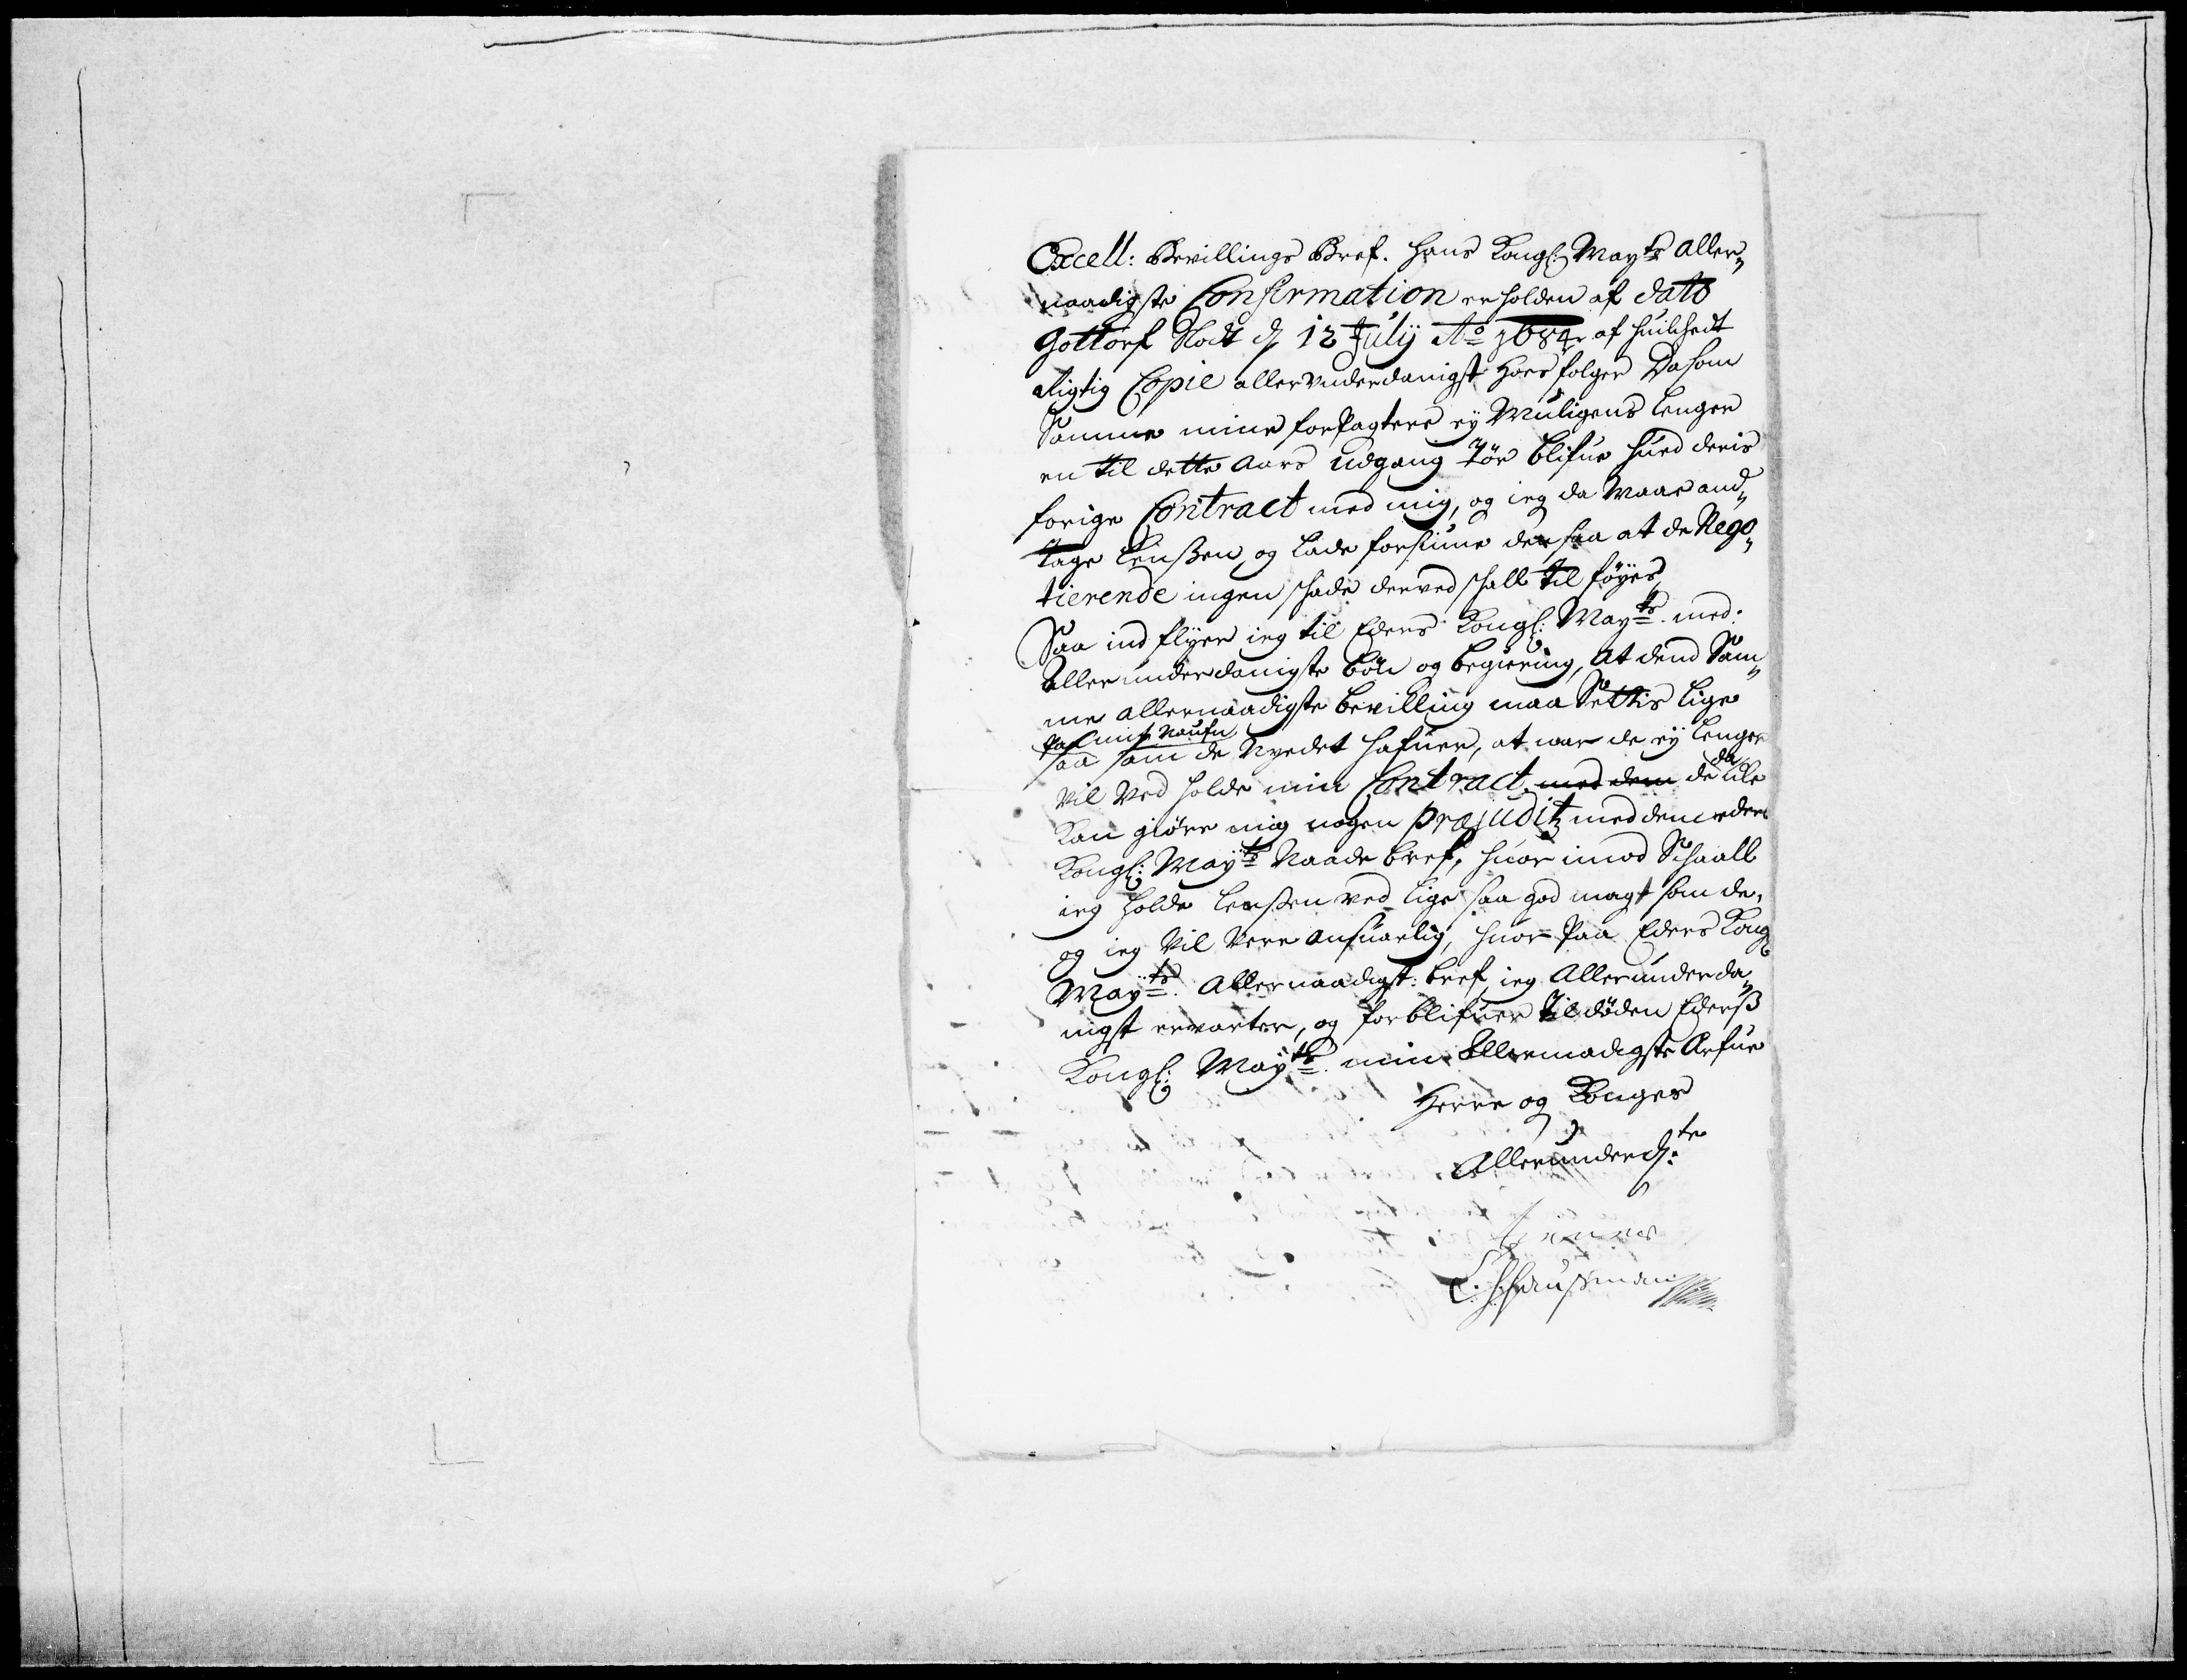 Excell: Bevillings Bref. Hans Kongl: Mayts aller„
naadigste Confirmation erholden af dato
Gottorf Slodt d 12 July Ao 1684 af huilchedt
Rigtig Copie allervnderdanigst hoes følger Dasom
Samme mine forPagtere ey Muligens lenger
en til dette Aars udgang tør blifue hued deris
forige Contract med mig, og ieg da maae and„
tage lenssen, og lade forsiune den saa at de Nego„
tierende ingen schade derved schall til føyes,
Saa ind flyer ieg til Eders Kongl: Mayts. med:
Allerunderdanigste bøn og begiering, at dend Sam„
me allernaadigste bevilling maa Settis lige
Paa mit Naufn
saa som de Nyedet hafuer, at naar de ey lenger
da
vil ved holde min Contract med dem de icke
kan giøre mig nogen præjuditz med dem eders
Kongl: Mayts Naade bref, huor imod Schaall
ieg holde lenssen ved lige saa god magt som de,
og ieg vil vere ansuarlig, huor Paa Eders Kongl
Mayts. Allernaadigst: bref, ieg Allerunderda„
nigst ervarter, og forblifuer til døden Ederß
Kongl: Mayts. min Allernadigste Arfue
Herre og Konges
Allerunderdte
tiener
Haussman